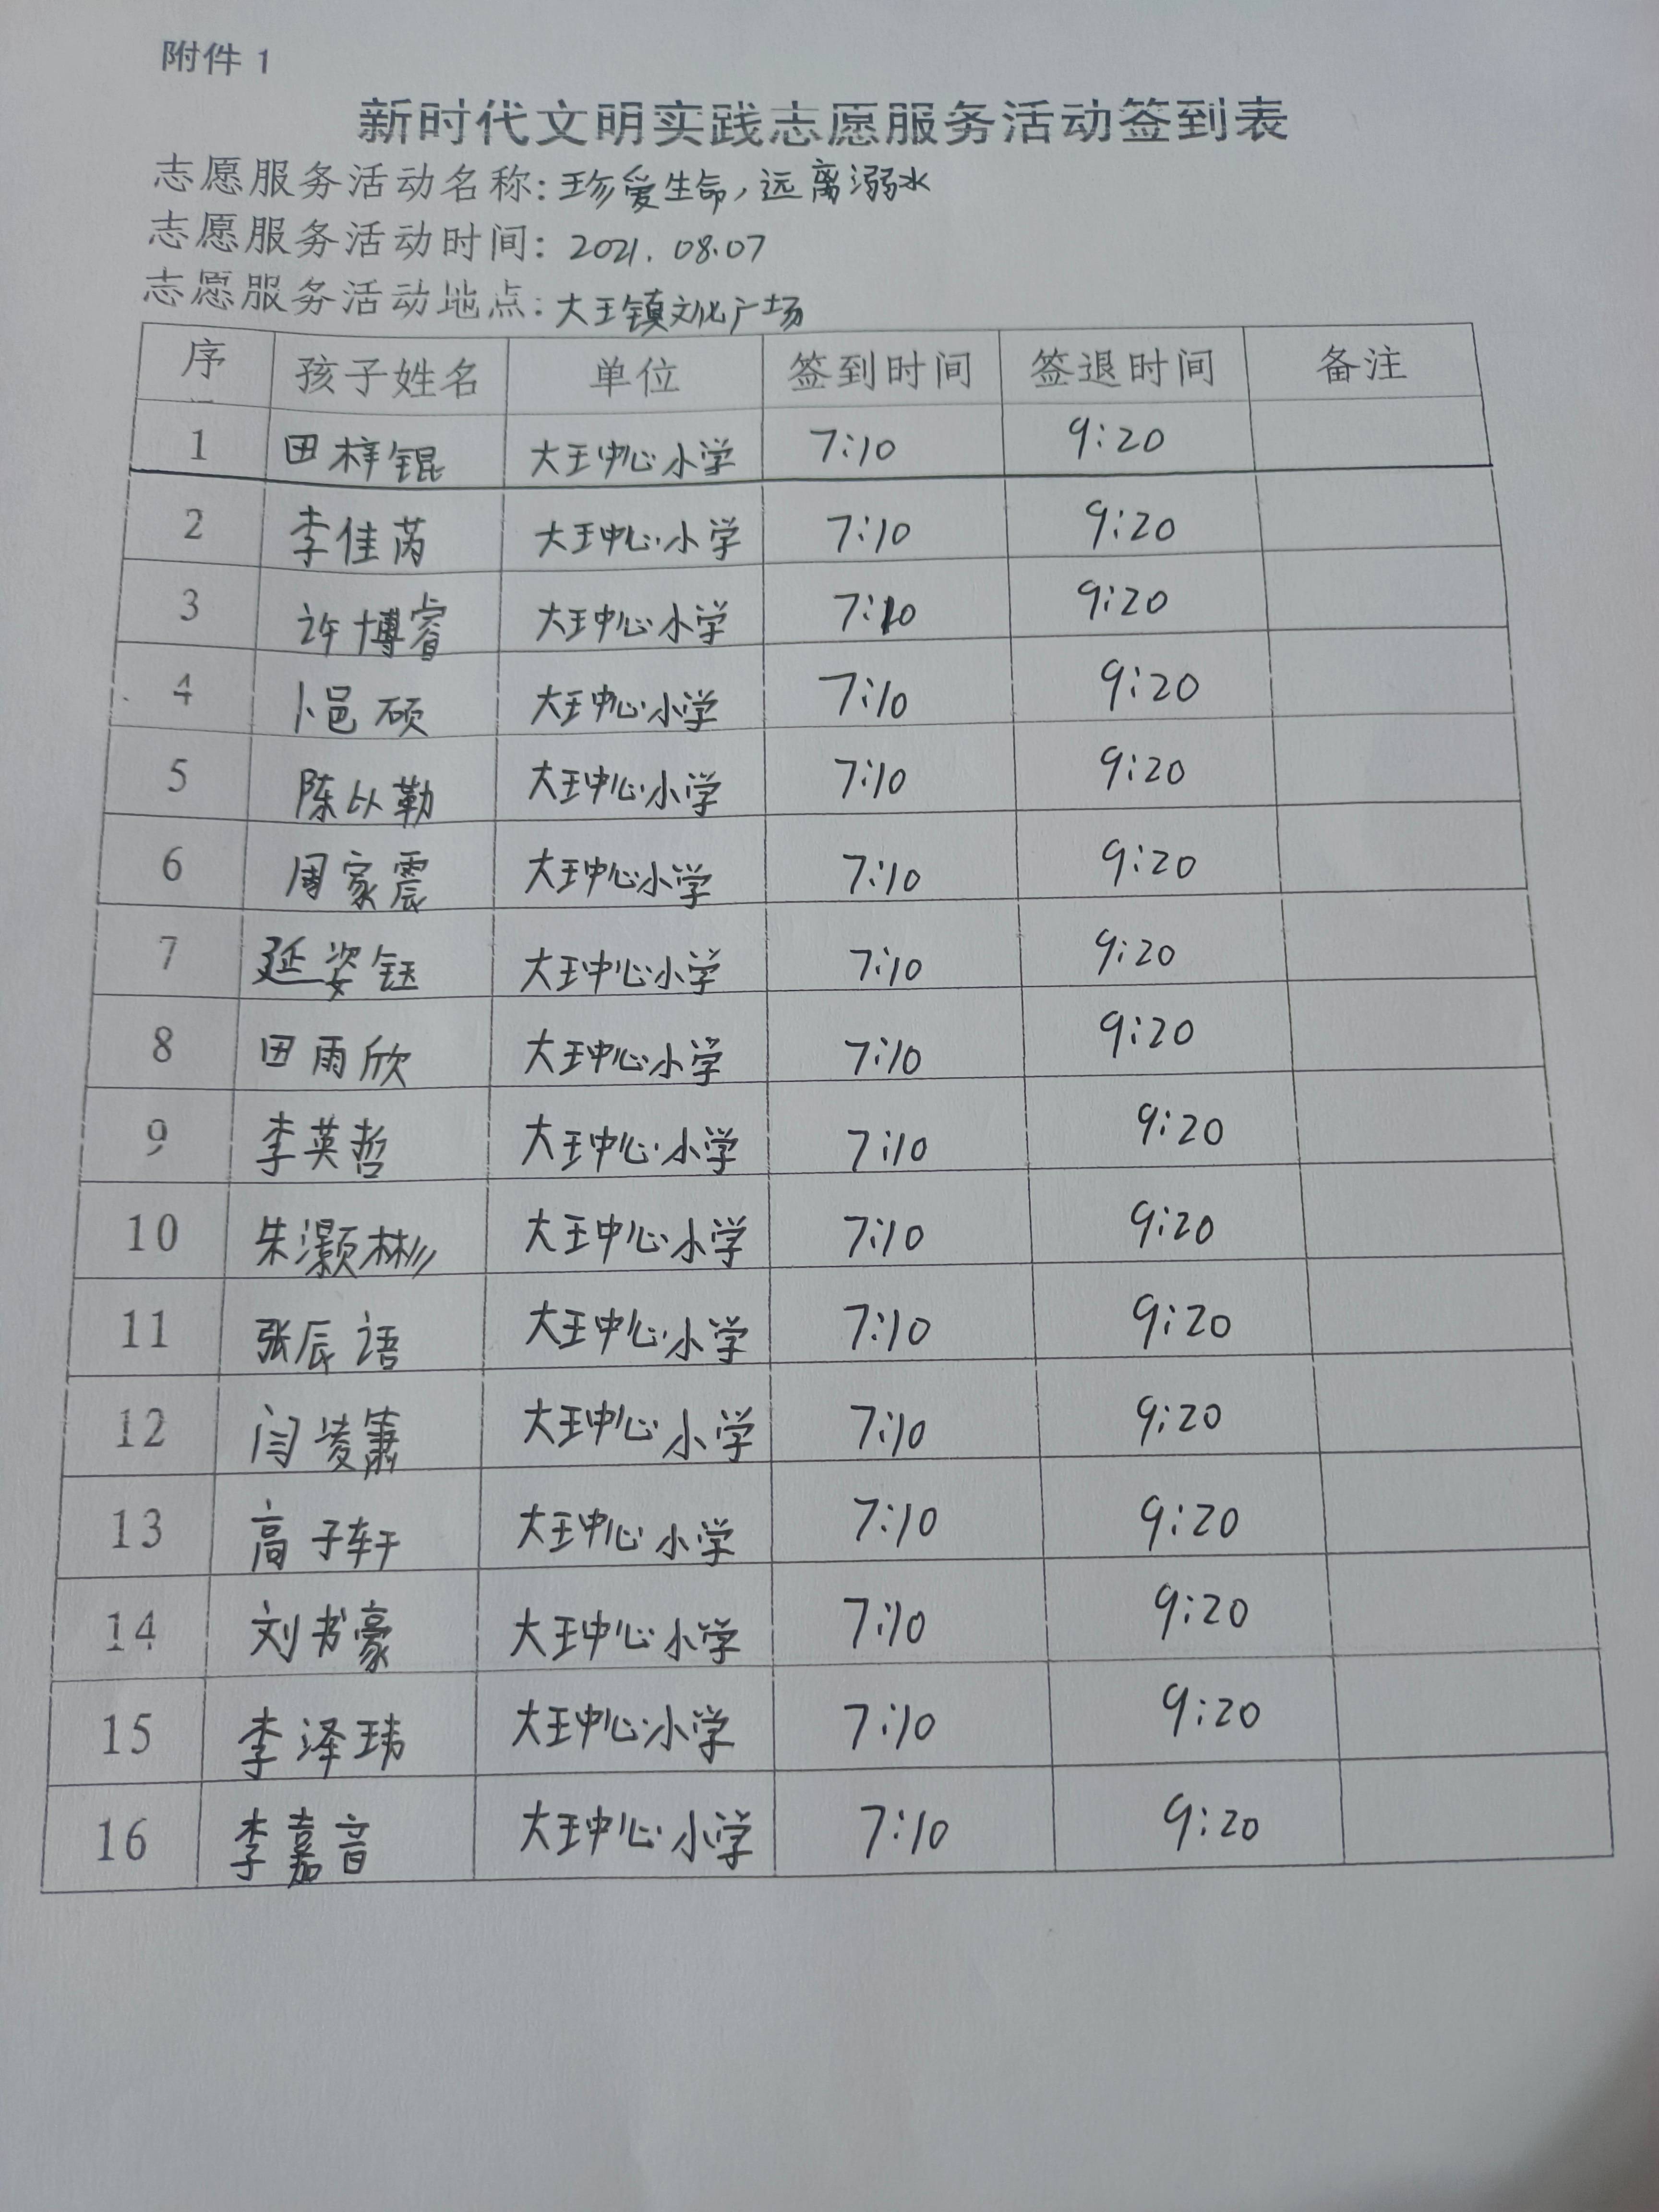 附件 1
新时代文明实践志愿服务活动签到表
志愿服务活动名称: 珍爱生命,远离溺水
志愿服务活动时间: 2021.08.07
志愿服务活动地点: 大王镇文化广场
序 孩子姓名 单位 签到时间 签退时间 备注
1 田梓锟 大王中心小学 7:10 9:20
2 李佳芮 大王中心小学 7:10 9:20
3 许博睿 大王中心小学 7:10 9:20
4 卜邑硕 大王中心小学 7:10 9:20
5 陈以勒 大王中心小学 7:10 9:20
6 周家震 大王中心小学 7:10 9:20
7 延姿钰 大王中心小学 7:10 9:20
8 田雨欣 大王中心小学 7:10 9:20
9 李英哲 大王中心小学 7:10 9:20
10 朱灏彬 大王中心小学 7:10 9:20
11 张辰语 大王中心小学 7:10 9:20
12 闫凌箫 大王中心小学 7:10 9:20
13 高子轩 大王中心小学 7:10 9:20
14 刘书豪 大王中心小学 7:10 9:20
15 李泽玮 大王中心小学 7:10 9:20
16 李嘉音 大王中心小学 7:10 9:20